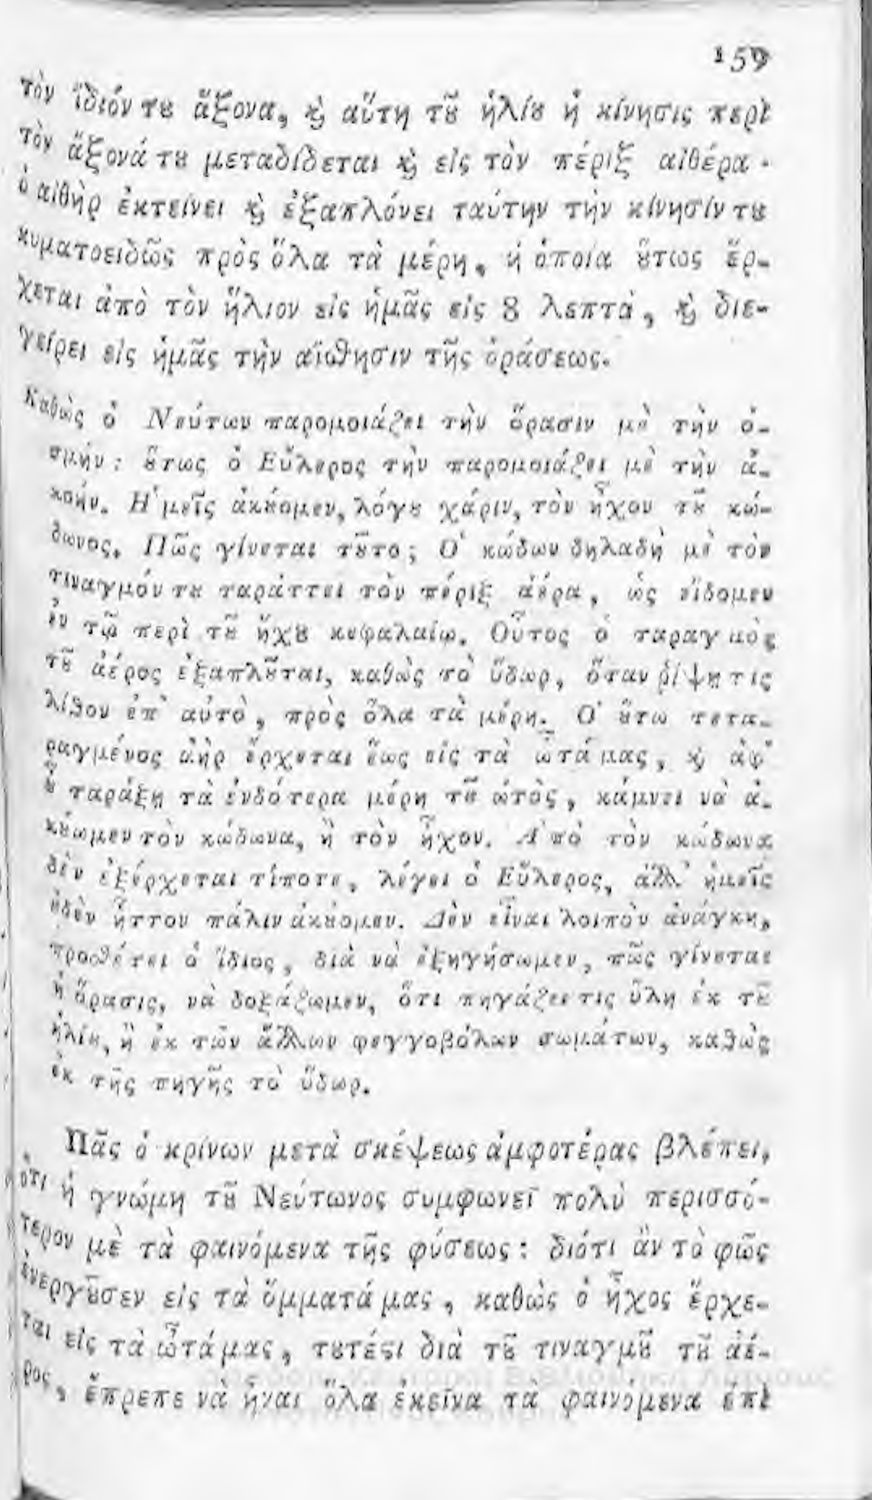 159
τὸν ἴδιόν τȣ ἄξονα, ϗ̀ αὕτη τȣ͂ ἡλίȣ ἡ κίνησις περὶ
τὸν ἄξονά τȣ μεταδίδεται ϗ̀ εἰς τὸν πέριξ αἰθέρα·
ὁ αἰθὴρ ἐκτείνει ϗ̀ ἐξαπλόνει ταύτην τὴν κίνησίν τȣ
κυματοειδῶς πρὸς ὅλα τὰ μέρη, ἡ ὁποία ȣ̔́τως ἔρ-
χεται ἀπὸ τὸν ἥλιον εἰς ἡμᾶς εἰς 8 λεπτὰ, ϗ̀ διε-
γείρει εἰς ἡμᾶς τὴν αἴσθησιν τῆς ὁράσεως.
Καθὼς ὁ Νεύτων παρομοιάζει τὴν ὅρασιν μὲ τὴν ὀ-
σμήν: ȣ̔́τως ὁ Εὔλερος τὴν παρομοιάζει μὲ τὴν ἀ-
κοήν. Η῾μεῖς ἀκȣ́ομεν, λόγȣ χάριν, τὸν ἦχον τȣ͂ κώ-
δωνος. Πῶς γίνεται τȣ͂το; Ο῾ κώδων δηλαδὴ μὲ τὸν
τιναγμόν τȣ ταράττει τὸν πέριξ ἀέρα, ὡς εἴδομεν
ἐν τῷ περὶ τȣ͂ ἤχȣ κεφαλαίῳ. Οὗτος ὁ ταραγμὸς
τȣ͂ ἀέρος ἐξαπλȣ͂ται, καθὼς τὸ ὕδωρ, ὅταν ῥίψῃ τις
λίθον ἐπ᾿ αὐτὸ, πρὸς ὅλα τὰ μέρη. Ο῾ ȣ̔́τω τετα-
ραγμένος ἀὴρ ἔρχεται ἕως εἰς τὰ ὦτά μας, ϗ̀ ἀφ᾿
ȣ̔͂ ταράξῃ τὰ ἐνδότερα μέρη τȣ͂ ὠτὸς, κάμνει νὰ ἀ-
κȣ́ωμεν τὸν κώδωνα, ἢ τὸν ἦχον. Α᾿πὸ τὸν κώδωνα
δὲν ἐξέρχεται τίποτε, λέγει ὁ Εὔλερος, ἀλλ᾿ ἡμεῖς
ȣ̓δὲν ἧττον πάλιν ἀκȣ́ομεν. Δὲν εἶναι λοιπὸν ἀνάγκη,
προσθέτει ὁ ἴδιος, διὰ νὰ ἐξηγήσωμεν, πῶς γίνεται
ἡ ὅρασις, νὰ δοξάζωμεν, ὅτι πηγάζει τις ὕλη ἐκ τȣ͂
ἡλίȣ, ἢ ἐκ τῶν ἄλλων φεγγοβόλων σωμάτων, καθὼς
ἐκ τῆς πηγῆς τὸ ὕδωρ.
Πᾶς ὁ κρίνων μετὰ σκέψεως ἀμφοτέρας βλέπει,
ὅτι ἡ γνώμη τȣ͂ Νεύτωνος συμφωνεῖ πολὺ περισσό-
τερον μὲ τὰ φαινόμενα τῆς φύσεως: διότι ἂν τὸ φῶς
ἐνεργȣ͂σεν εἰς τὰ ὄμματά μας, καθὼς ὁ ἦχος ἔρχε-
ται εἰς τὰ ὦτά μας, τȣτέϛι διὰ τȣ͂ τιναγμȣ͂ τȣ͂ ἀέ-
ρος, ἔπρεπε νὰ ἦναι ὅλα ἐκεῖνα τὰ φαινόμενα ἐπὶ